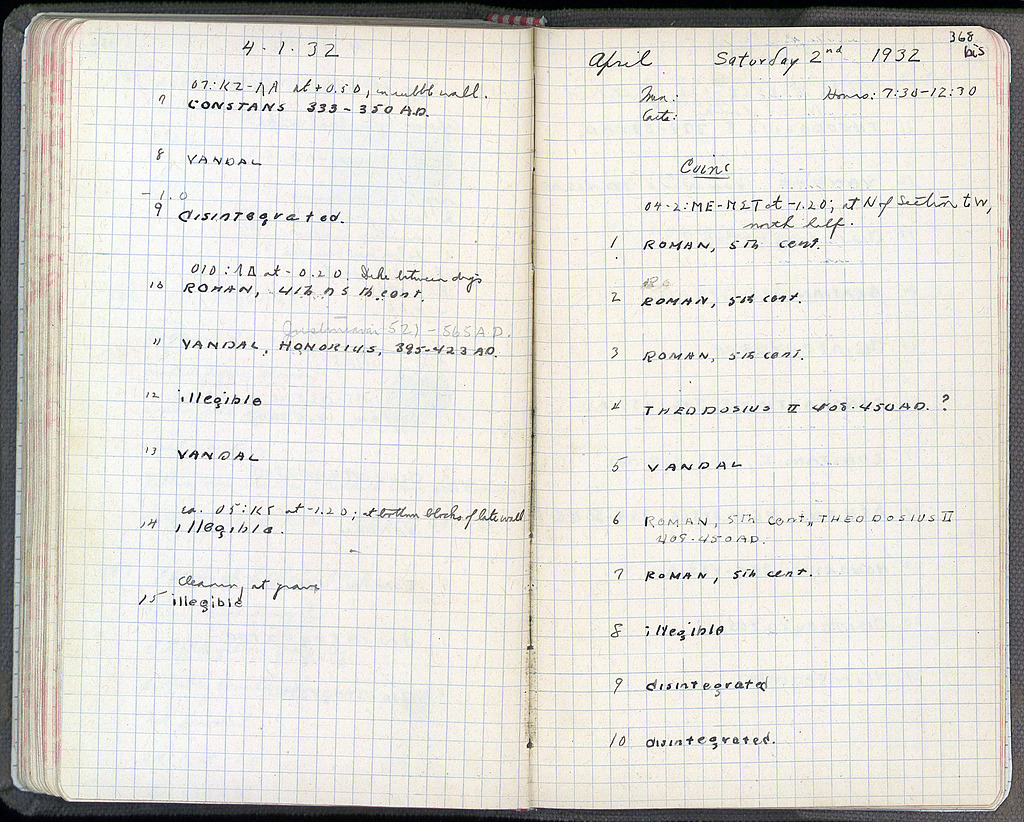 4·1·32
07:ΚΖ-ΛΑ at +0.50, in rubble wall.
7 CONSTANS 333-350 A.D.
8 VANDAL
-1.0
9 disintegrated.
010:ΛΔ at -0.20. Dike between digs
10 ROMAN, 4th or 5th cent.
Justinian 527-565 A.D.
11 VANDAL, HONORIUS, 395-423 AD.
12 illegible
13 VANDAL
ca. 05:ΚΣ at -1.20; at bottom blocks of late wall
14 illegible.
cleaning at grave
15 illegible
368
bis
April Saturday 2nd 1932
Men: Hours: 7:30-12:30
Carts:
Coins
04-2:ΜΕ-ΜΣΤ at -1.20; at N of Section to W,
north half.
1 ROMAN, 5th cent.
2 ROMAN, 5th cent.
3 ROMAN, 5th cent.
4 THEODOSIUS II 408-450 AD. ?
5 VANDAL
6 ROMAN, 5th cent., THEODOSIUS II
408-450 AD.
7 ROMAN, 5th cent.
8 illegible
9 disintegrated
10 disintegrated.